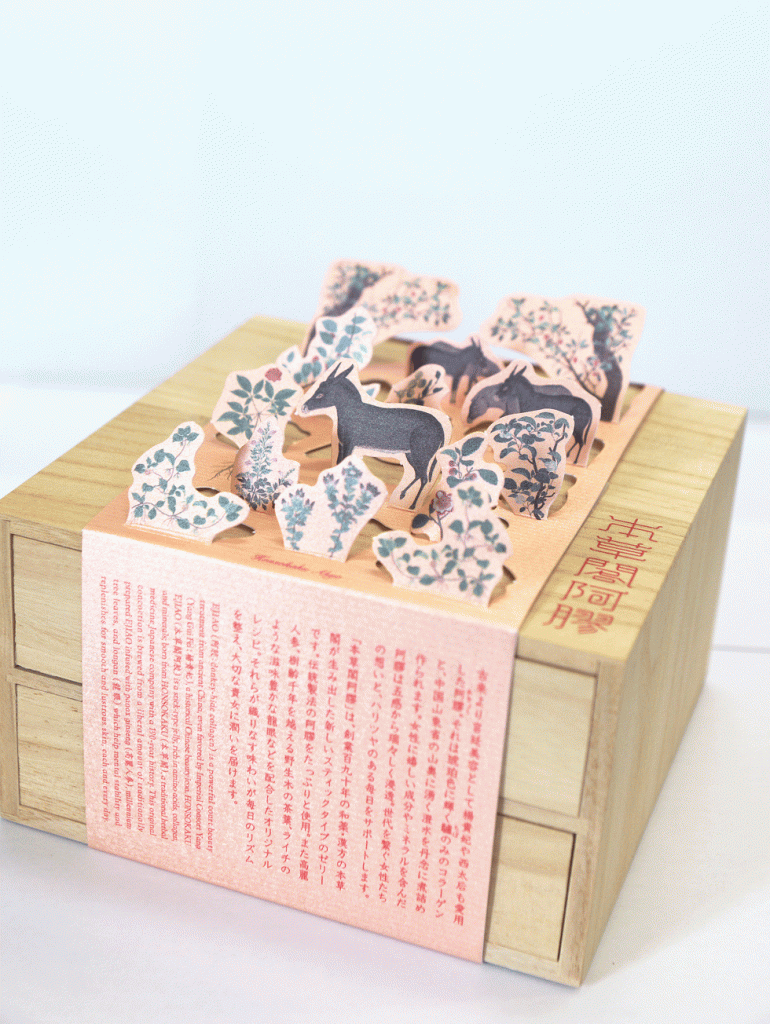 本草閣阿膠
Honzokaku Akyo
古来より宮廷美容として楊貴妃や西太后も愛用
した阿膠。それは琥珀色に輝く驢のみのコラーゲン
と、中国山東省の山奥に湧く湧水を丹念に煮詰め
作られます。女性に嬉しい成分やミネラルを含んだ
阿膠は五感から瑞々しく浸透。世代を繋ぐ女性たち
の想いと、ハリツヤのある毎日をサポートします。
「本草閣阿膠」は、創業百九十年の和薬・漢方の本草
閣が生み出した新しいスティックタイプのゼリー
です。伝統製法の阿膠をたっぷりと使用。また高麗
人参、樹齢千年を越える野生木の茶葉、ライチの
ような滋味豊かな龍眼などを配合したオリジナル
レシピ。それらが織りなす味わいが毎日のリズム
を整え、大切な貴女に潤いを届けます。
EJIAO (阿膠: donkey-hide collagen) is a powerful court beauty
treatment from ancient China, even favored by Imperial Consort Yang
(Yang Gui Fei: 楊貴妃), a historical Chinese beauty icon. HONSOKAKU
EJIAO (本草閣阿膠) is a stick-type jelly, rich in amino acids, collagen,
and minerals, born from HONSOKAKU (本草閣), a traditional herbal
medicine Japanese company with a 190-year history. This original
concoction is brewed from a liberal amount of traditionally
prepared EJIAO infused with panax ginseng (高麗人参), millennium
tree leaves, and longan (龍眼) which help mental stability and
replenishes for smooth and lustrous skin, each and every day.